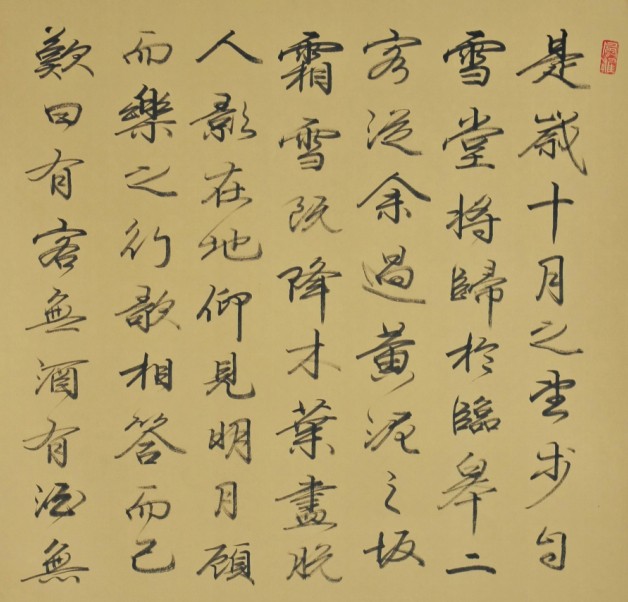 是歲十月之望步自
雪堂將歸於臨皋二
客從余過黃泥之坂
霜雪既降木葉盡脫
人影在地仰見明月顧
而樂之行歌相答而已
歎曰有客無酒有酒無